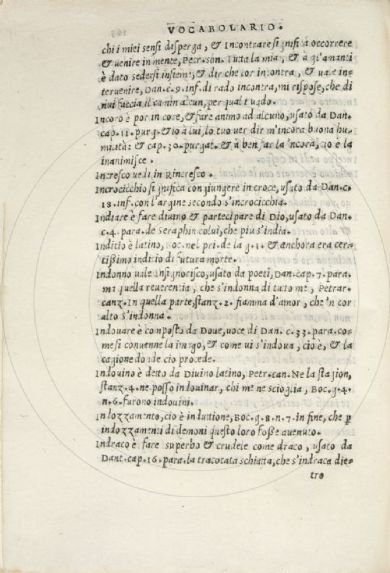 VOCABOLARIO.
chi i miei sensi disperga, & Incontrare si gnifica occorrere
& uenire in mente, Petr. son. Tutta la mia, & a gl'amanti
è dato sedersi insieme, & dir che lor incontra, & uale in=
teruenire, Dan. c. 9. inf. di rado incontra, mi rispose, che di
nui faccia il camin alcun, per qual i uado.
Incoro è por in core, & fare animo ad alcuno, usato da Dan.
cap. 11. purg. & io a lui, lo tuo uer dir m'incora buona hu=
miltà: & cap. 30. purgat. & a ben far la'ncora, cio è la
inanimisce.
Incresco uedi in Rincresco.
Incrocicchio si gnifica con giungere in croce, usato da Dan. c.
18. inf. con l'argine secondo s'incrocicchia.
Indiare è fare diuino & partecipare di Dio, usato da Dan.
c. 4. para. de Seraphin colui, che piu s'india.
Inditio è latino, Boc. nel pri. de la g. 1. & anchora era cer=
tissimo inditio di futura morte.
Indonno uale Insignorisco, usato da poeti, Dan. cap. 7. para.
mi quella reuerentia, che s'indonna di tutto me, Petrar.
canz. In quella parte, stanz. 2. fiamma d'amor, che'n cor
alto s'indonna.
Indouare è composto da Doue, uoce di Dan. c. 33. para. co=
me si conuenne la imago, & come ui s'indoua, cio è, & la
cagione do ide cio procede.
Indouino è detto da Diuino latino, Petr. can. Ne la stagion,
stanz. 4. ne posso indouinar, chi me ne scioglia, Boc. g. 4.
n. 6. furono indouini.
In lozzamento, cio è induttione, Boc. g. 8. n. 7. in fine, che p
indozzamenti di demoni questo loro fosse auenuto.
Indraco è fare superbo & crudele come draco, usato da
Dant. cap. 16. para. la tracotata schiatta, che s'indraca die=
tro